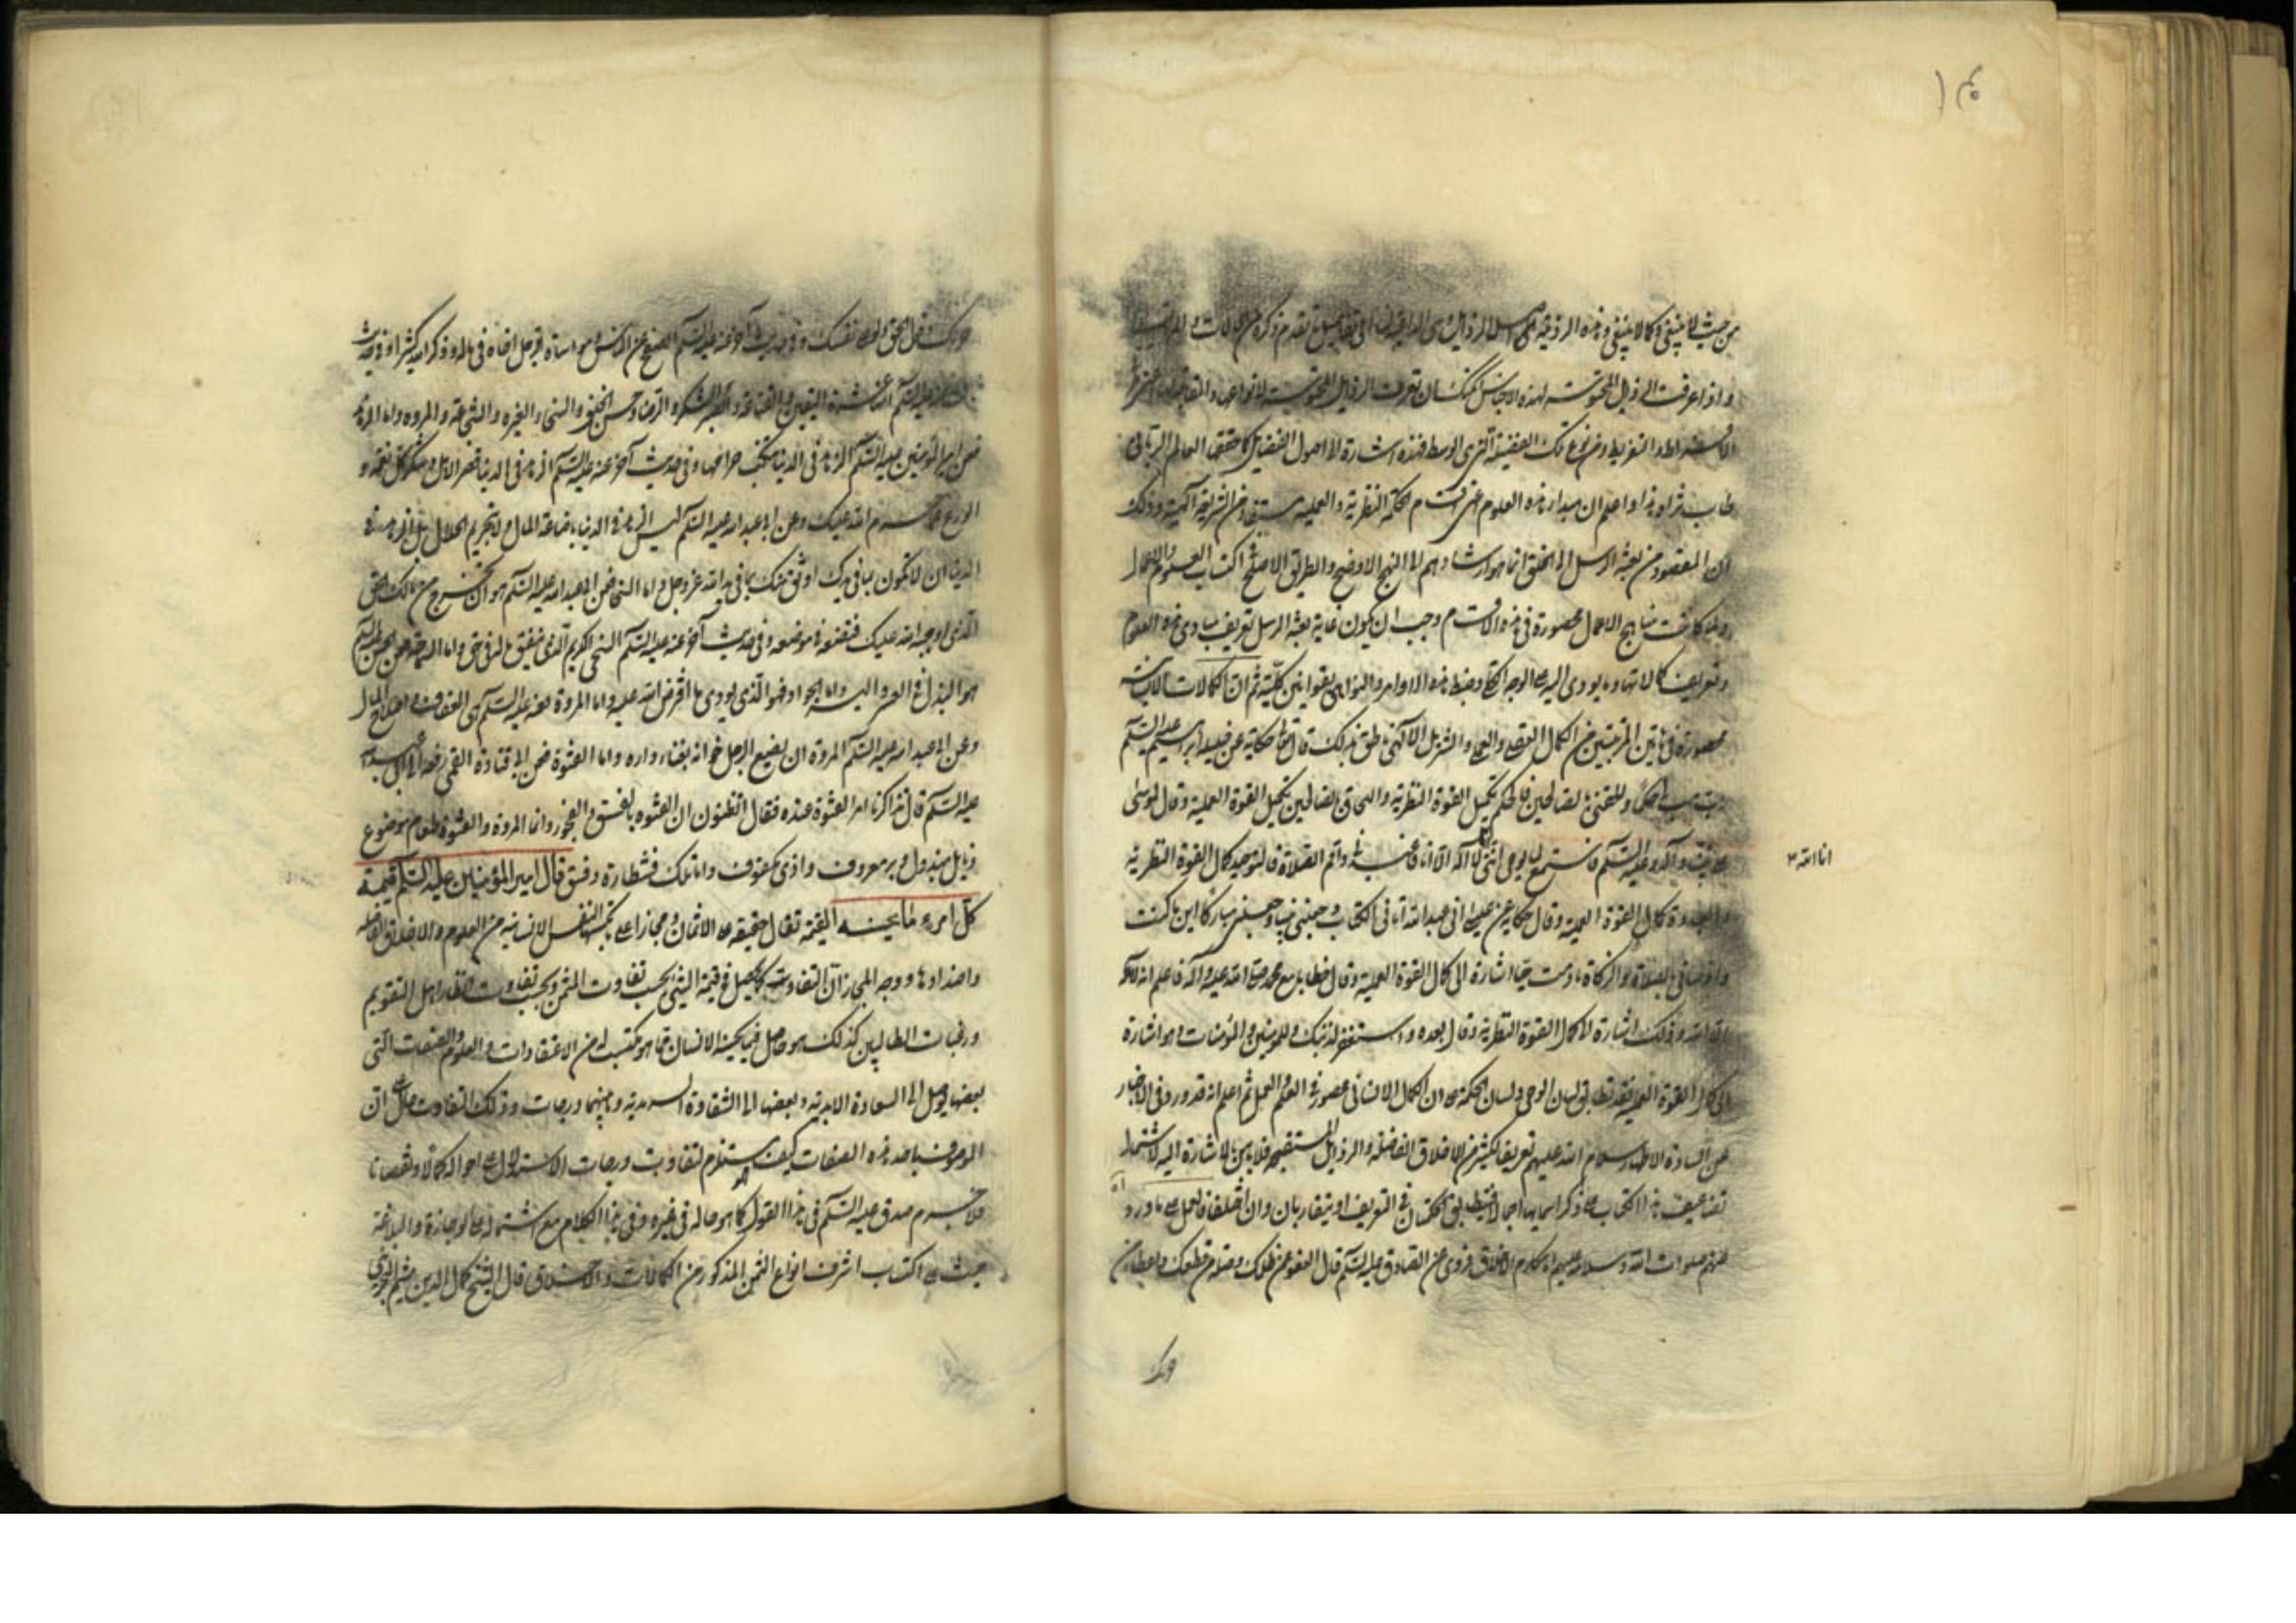 ١٥٠
من حيث لا ينبغي وكما لا ينبغي وهذه الرذيلة
واذا عرفت الرذايل لهذه الاجناس امكنك ان تعرف الرذايل
الافراط والتفريط ومن نوع تلك الفضيلة التي هي الوسط فهذه اشارة الى اصول الفضايل كما حققه العالم الرباني
طاب ثراه هذا واعلم ان مبدا هذه العلوم اعني اقسام الحكمة النظرية والعملية مستفاد من الشريعة الالهية وذلك
ان المقصود من بعثة الرسل الى الخلق انما هو ارشادهم الى النهج الاوضح والطريق الاصلح في اكتساب العلوم والاعمال
ولما كانت مناهج الاعمال محصورة في هذه الاقسام وجب ان يكون غاية بعثة الرسل تعريف مبادي هذه العلوم
وتعريف كمالاتها وما يودي اليه على الوجه الكلي وضبط هذه الاوامر والنواهي بقوانين كلية ثم ان الكمالات الانسانية
محصورة في هاتين المرتبتين من الكمال العلمي والعملي والتنزيل الالهي ناطق بذلك قال تعالى حكاية عن خليله ابراهيم عليه السلم
رب هب لي حكما والحقني بالصالحين فالحكم تكميل القوة النظرية والالحاق بالصالحين تكميل القوة العملية وقال لموسى
على نبينا وآله وعليه السلم فاستمع لما يوحى انني لا اله الا انا فاعبدني واقم الصلاة فالتوحيد كمال القوة النظرية
انا الله
والعبادة كمال القوة العملية وقال حكاية عن عيسى اني عبد الله آتاني الكتاب وجعلني نبيا وجعلني مباركا اين ما كنت
واوصاني بالصلاة والزكاة ما دمت حيا اشارة الى كمال القوة العملية وقال خطابا مع محمد صلى الله عليه وآله فاعلم انه لا اله
الا الله وذلك اشارة الى كمال القوة النظرية وقال بعده واستغفر لذنبك وللمومنين والمؤمنات وهو اشارة
الى كمال القوة العملية فقد تطابق لسان الوحي ولسان الحكمة على ان الكمال الانساني محصور في العلم والعمل ثم اعلم انه قد ورد في الاخبار
عن السادة الاطهار سلام الله عليهم تعريف لكثير من الاخلاق الفاضلة والرذايل المستقبحة فلا باس بالاشارة اليه لاشتمال
تضاعيف هذا الكتاب على ذكر اساميها اجمالا فيتطابق الحكمتان في التعريف او يتقاربان وان اختلفا فالعمل على ما ورد
عنهم صلوات الله وسلامه عليهم اما مكارم الاخلاق فروي عن الصادق عليه السلم قال العفو عمن ظلمك وصلة من قطعك واعطاء من
حرمك
حرمك وقول الحق ولو على نفسك وفي حديث آخر عنه عليه السلم الصفح عن الناس ومواساة الرجل اخاه في ماله وذكر الله كثيرا وفي حديث
اليقين والقناعة والصبر والشكر والرضا وحسن الخلق والسخاء والغيرة والشجاعة والمروة واما الزهد
فعن امير المؤمنين عليه السلم الزهد في الدنيا تنكب حرامها وفي حديث آخر عنه عليه السلم الزهد في الدنيا قصر الامل وشكر كل نعمة و
الورع عما حرم الله عليك وعن ابي عبد الله عليه السلم ليس الزهد في الدنيا باضاعة المال ولا تحريم الحلال بل الزهد في
الدنيا ان لا تكون بما في يدك اوثق منك بما في يد الله عز وجل واما السخا فعن ابي عبد الله عليه السلم هو ان تخرج من مالك الحق
الذي اوجبه الله عليك فتضعه في موضعه وفي حديث آخر عنه عليه السلم السخي الكريم الذي ينفق ماله في حق واما السماحة فعن الحسن عليه السلم
هو البذل في العسر واليسر واما الجواد فهو الذي يودي ما افترض الله عليه واما المروة فعنه عليه السلم هي العفاف واصلاح المال
وعن ابي عبد الله عليه السلم المروة ان يضع الرجل خوانه بفناء داره واما الفتوة فعن ابي قتادة القمي رفعه الى ابي عبد الله
عليه السلم قال تذاكرنا امر الفتوة عنده فقال اتظنون ان الفتوة بالفسق والفجور وانما المروة والفتوة طعام موضوع
ونايل مبذول وبر معروف واذى مكفوف واما تلك فشطارة وفسق قال امير المؤمنين عليه السلم قيمة
كل امرء ما يحسنه القيمة تقال حقيقة على الاثمان ومجازا على النفس الانسانية من العلوم والاخلاق الفاضلة
واضدادها ووجه المجاز ان التفاوت كما يحصل في قيمة الشيء بحسب تفاوت المثمن وبحسب تفاوت انظار اهل التقويم
ورغبات الطالبين كذلك هو حاصل فيما يحسنه الانسان مما هو مكتسب له من الاعتقادات والعلوم والصفات التي
بعضها يوصل الى السعادة الابدية وبعضها الى الشقاوة السرمدية وما بينهما درجات وذلك التفاوت حاصل
الموصوف باحد هذه الصفات كيف يستلزم تفاوت درجات الاستدلال على احواله كمالا ونقصانا
فلا جرم صدق عليه السلم في هذا القول كما هو حاله في غيره وفي هذا الكلام مع اشتماله على الوجازة والبلاغة
حث على اكتساب اشرف انواع الثمن المذكور من الكمالات والاخلاق قال الشيخ كمال الدين ميثم البحراني